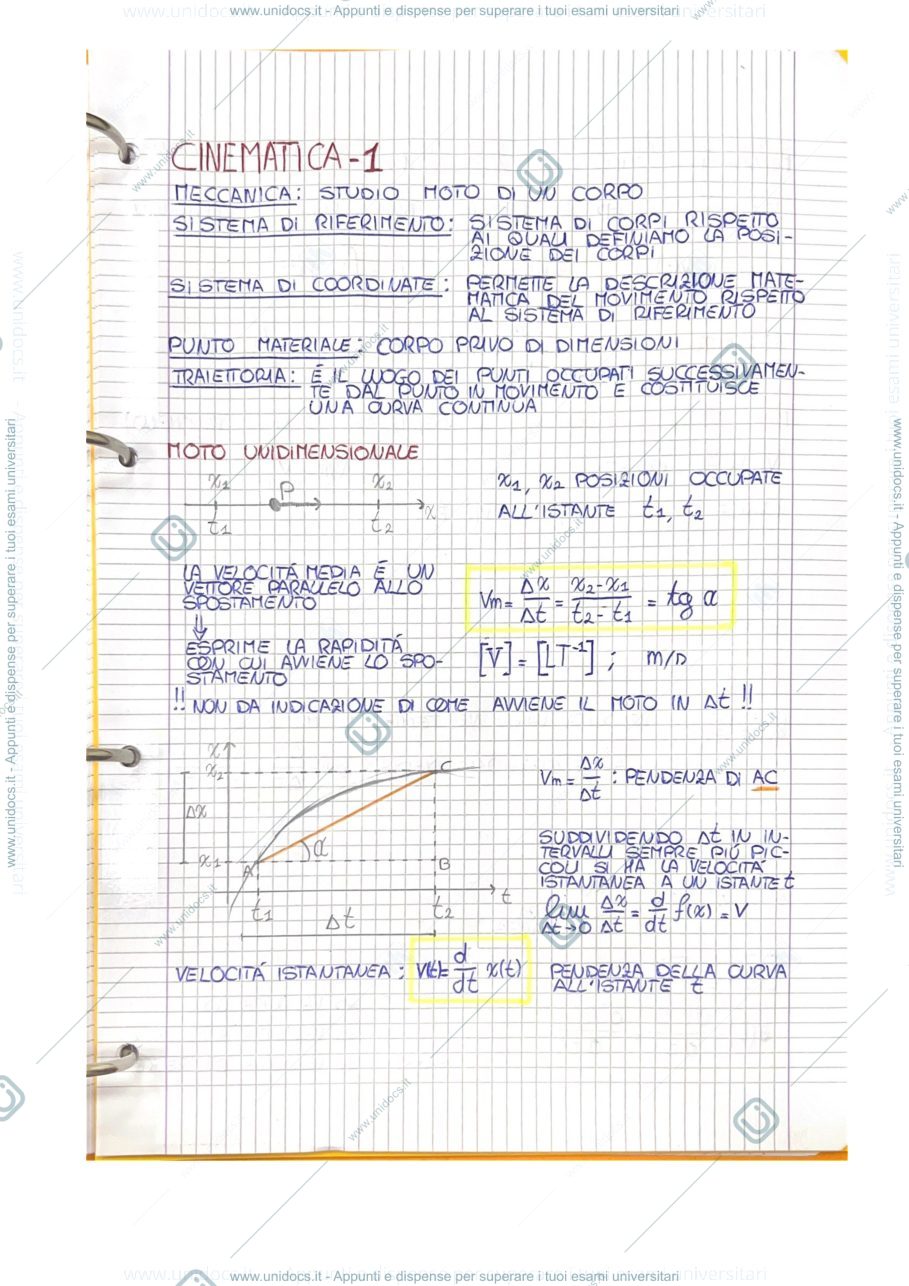 www.unidocs.it - Appunti e dispense per superare i tuoi esami universitari
CINEMATICA-1
MECCANICA: STUDIO MOTO DI UN CORPO
SISTEMA DI RIFERIMENTO: SISTEMA DI CORPI RISPETTO
AI QUALI DEFINIAMO LA POSI-
ZIONE DEI CORPI
SISTEMA DI COORDINATE: PERMETTE LA DESCRIZIONE MATE-
MATICA DEL MOVIMENTO RISPETTO
AL SISTEMA DI RIFERIMENTO
PUNTO MATERIALE: CORPO PRIVO DI DIMENSIONI
TRAIETTORIA: É IL LUOGO DEI PUNTI OCCUPATI SUCCESSIVAMEN-
TE DAL PUNTO IN MOVIMENTO E COSTITUISCE
UNA CURVA CONTINUA
MOTO UNIDIMENSIONALE
x1 P x2
t1 t2 x
x1, x2 POSIZIONI OCCUPATE
ALL'ISTANTE t1, t2
LA VELOCITÁ MEDIA É UN
VETTORE PARALLELO ALLO
SPOSTAMENTO
⇓
ESPRIME LA RAPIDITÁ
CON CUI AVVIENE LO SPO-
STAMENTO
Vm = Δx/Δt = (x2-x1)/(t2-t1) = tg α
[V] = [LT⁻¹] ; m/s
!! NON DA INDICAZIONE DI COME AVVIENE IL MOTO IN Δt !!
x
x2 C
Δx
α
x1 A B
t
t1 t2
Δt
Vm = Δx/Δt : PENDENZA DI AC
SUDDIVIDENDO Δt IN IN-
TERVALLI SEMPRE PIÚ PIC-
COLI SI HA LA VELOCITÁ
ISTANTANEA A UN ISTANTE t
lim Δt→0 Δx/Δt = d/dt f(x) = V
VELOCITÁ ISTANTANEA: V(t)= d/dt x(t)
PENDENZA DELLA CURVA
ALL'ISTANTE t
www.unidocs.it - Appunti e dispense per superare i tuoi esami universitari
www.unidocs.it - Appunti e dispense per superare i tuoi esami universitari
www.unidocs.it - Appunti e dispense per superare i tuoi esami universitari